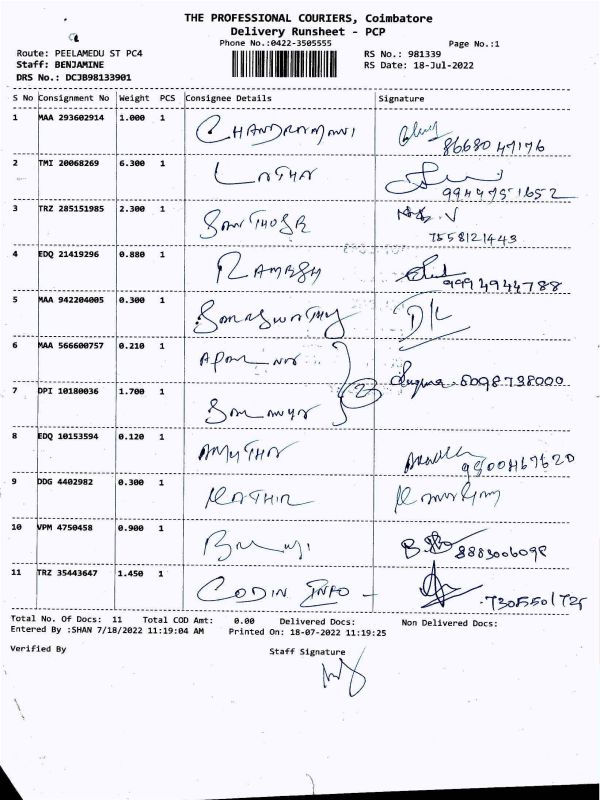 THE PROFESSIONAL COURIERS, Coimbatore
Delivery Runsheet - PCP
Phone No.:0422-3505555
Page No.:1
Route: PEELAMEDU ST PC4
RS No.: 981339
Staff: BENJAMINE
RS Date: 18-Jul-2022
DRS No.: DCJB98133901
S No Consignment No Weight PCS Consignee Details Signature
1 MAA 293602914 1.000 1 CHANDRAMANI
86680 47176
2 TMI 20068269 6.300 1 LATHA
9944751652
3 TRZ 285151985 2.300 1 SANTHOSH
7558121443
4 EDQ 21419296 0.880 1 RAMESH
9994944788
5 MAA 942204005 0.300 1 SARASWATHY
6 MAA 566600757 0.210 1 APARNA
2
8098738000
7 DPI 10180036 1.700 1
8 EDQ 10153594 0.120 1 AMUTHA
9500467620
9 DDG 4402982 0.300 1 KATHIR
10 VPM 4750458 0.900 1 BALAJI
8883006098
11 TRZ 35443647 1.450 1 CODIN INFO -
7305501725
Total No. Of Docs: 11 Total COD Amt: 0.00 Delivered Docs: Non Delivered Docs:
Entered By :SHAN 7/18/2022 11:19:04 AM Printed On: 18-07-2022 11:19:25
Verified By Staff Signature